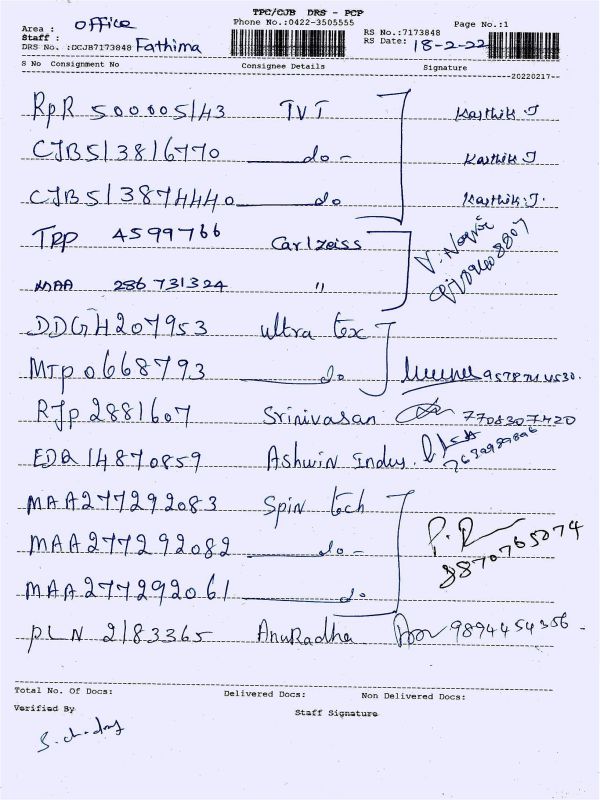 TPC/CJB DRS - PCP
Phone No.:0422-3505555
Page No.:1
Area : office
Staff :
DRS No. :DCJB7173848 Fathima
RS No.:7173848
RS Date: 18-2-22
S No Consignment No Consignee Details Signature
20220217
RPR 500005143 TVT Karthik.J
CJB513816770 do - Karthik J
CJB513874440 do Karthik.J.
TRP 4599766 Carlzeiss
MAA 286731324 "
DDGH207953 ultra tex
MTP0668793 do
RJP2881607 Srinivasan 7708307420
EDQ14870859 Ashwin Indus.
MAA277292083 Spin tech
MAA277292082 do - P.R
MAA277292061 do 8870765074
PLN 2183365 AnuRadha 9894454356 -
Total No. Of Docs: Delivered Docs: Non Delivered Docs:
Verified By Staff Signature